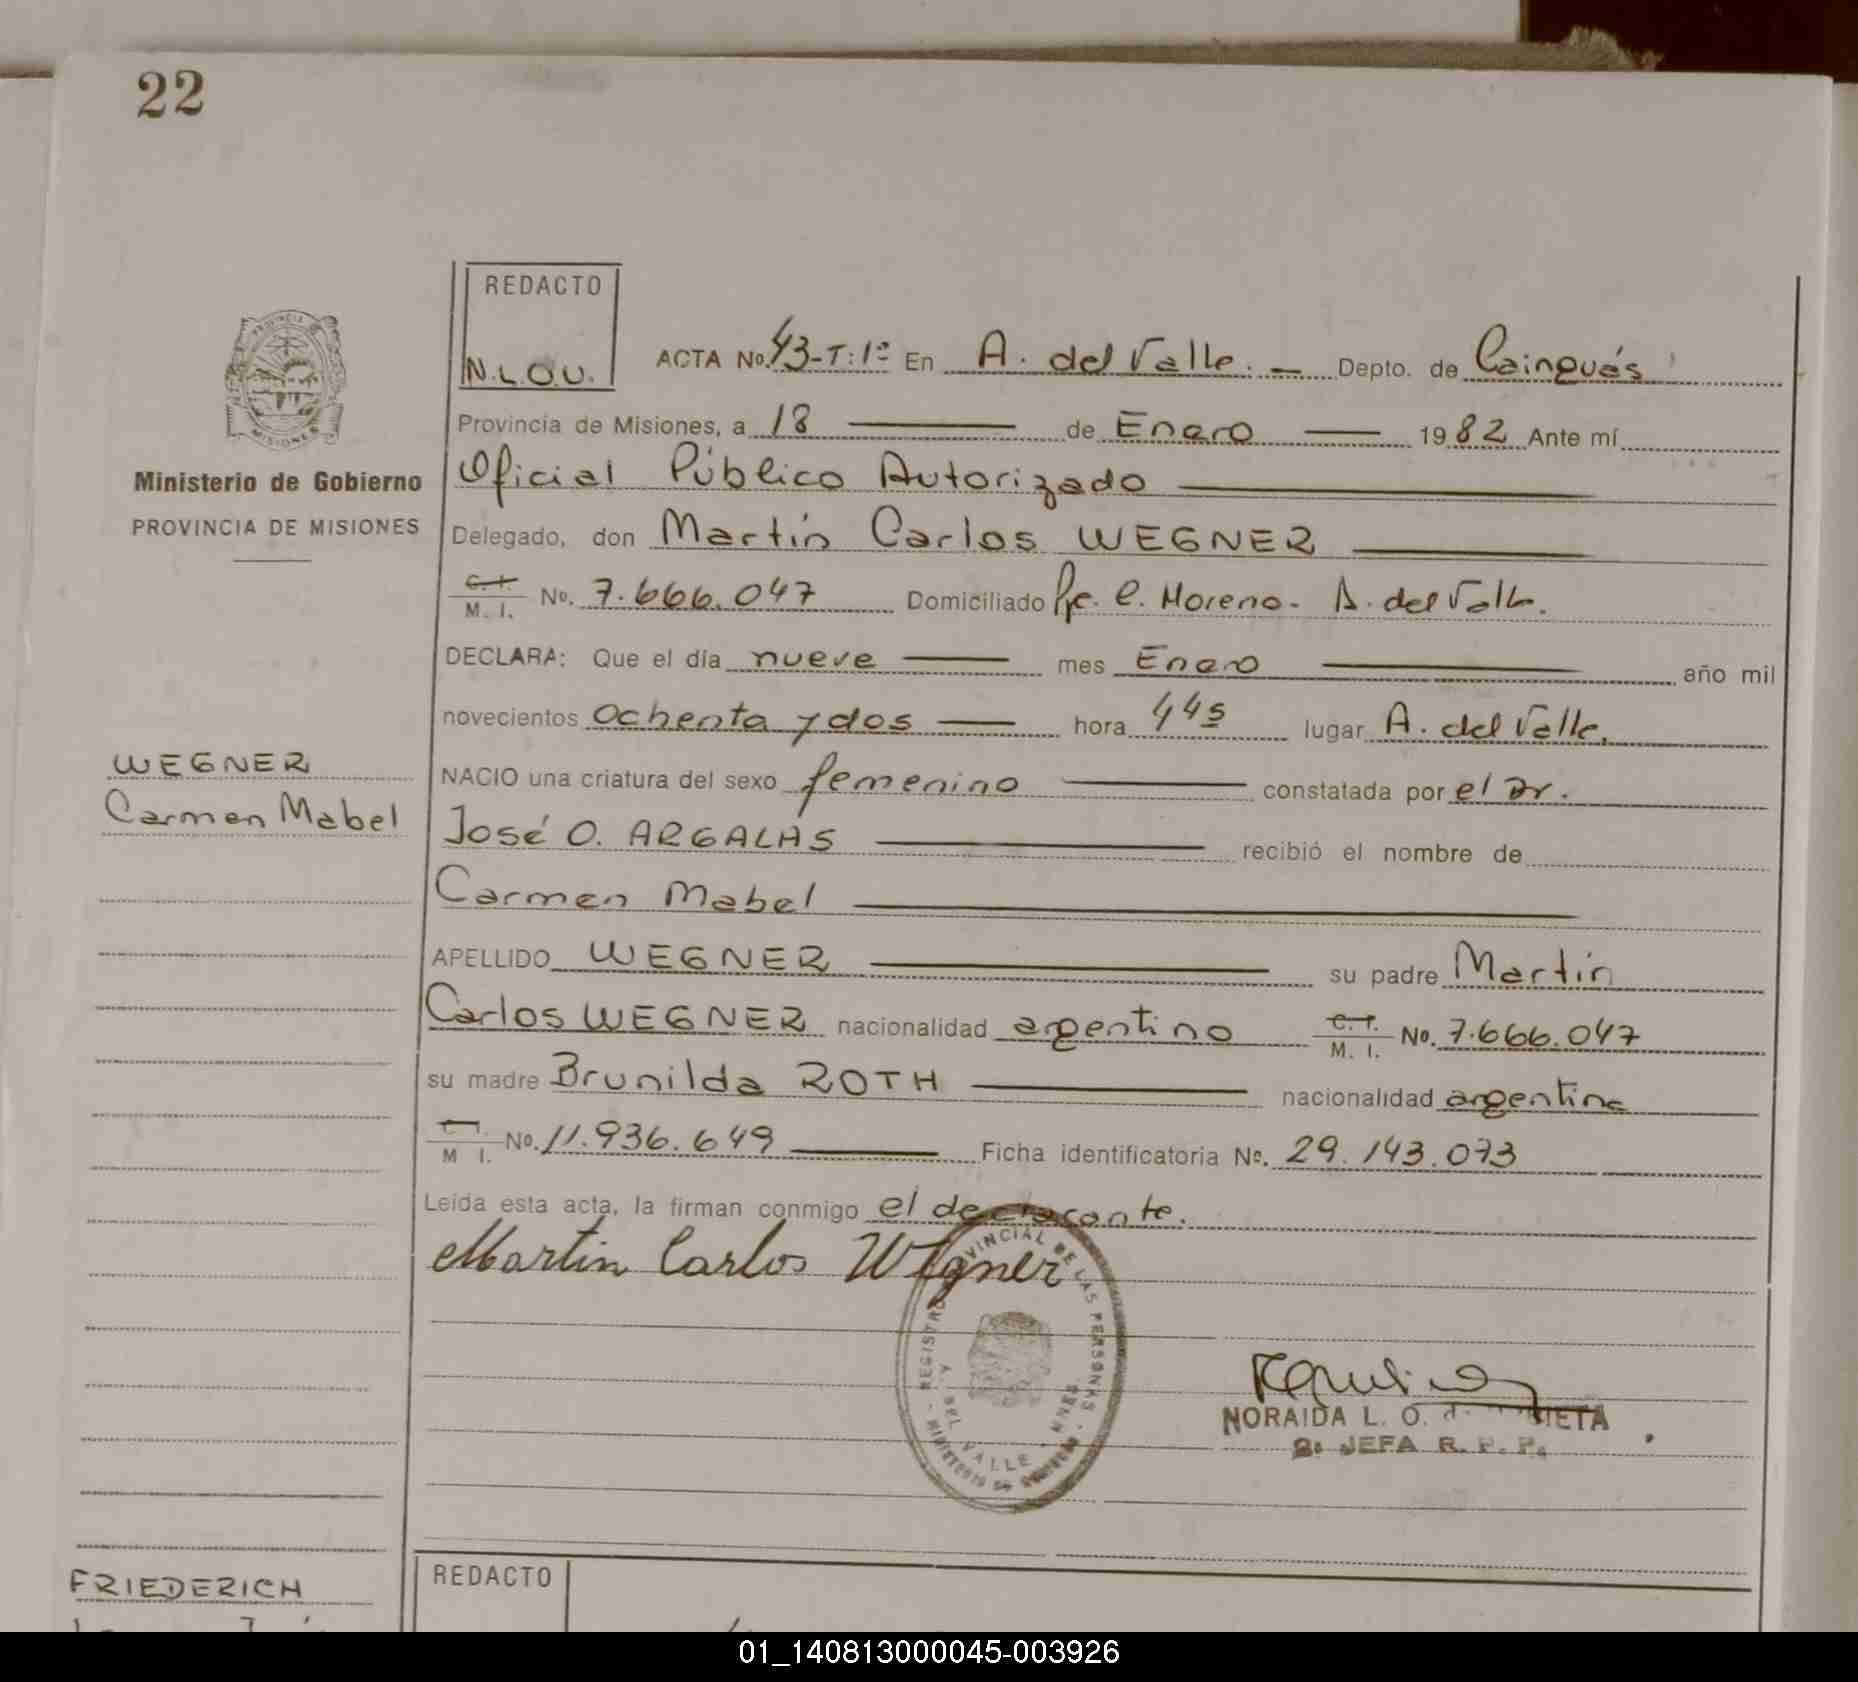 22
REDACTO
N.L.O.U.
ACTA No. 43-T:1º En A. del Valle. — Depto. de Cainguás
Provincia de Misiones, a 18 — de Enero — 1982 Ante mí
Oficial Público Autorizado
Ministerio de Gobierno
PROVINCIA DE MISIONES
Delegado, don Martín Carlos WEGNER
C.I. M. I. No. 7.666.047 Domiciliado Pje. C. Moreno - A. del Valle.
DECLARA: Que el día nueve — mes Enero — año mil
novecientos ochenta y dos — hora 445 lugar A. del Valle.
WEGNER
Carmen Mabel
NACIO una criatura del sexo femenino — constatada por el Dr.
José O. ARGALAS — recibió el nombre de
Carmen Mabel
APELLIDO WEGNER — su padre Martín
Carlos WEGNER nacionalidad argentino C.I. M. I. No. 7.666.047
su madre Brunilda ROTH — nacionalidad argentina
M I. No. 11.936.649 — Ficha identificatoria No. 29.143.073
Leída esta acta, la firman conmigo el declarante.
Martin Carlos Wegner
REGISTRO PROVINCIAL DE LAS PERSONAS
A. DEL VALLE
NORAIDA L. O.
2a JEFA R. P. P.
FRIEDERICH
REDACTO
01_140813000045-003926